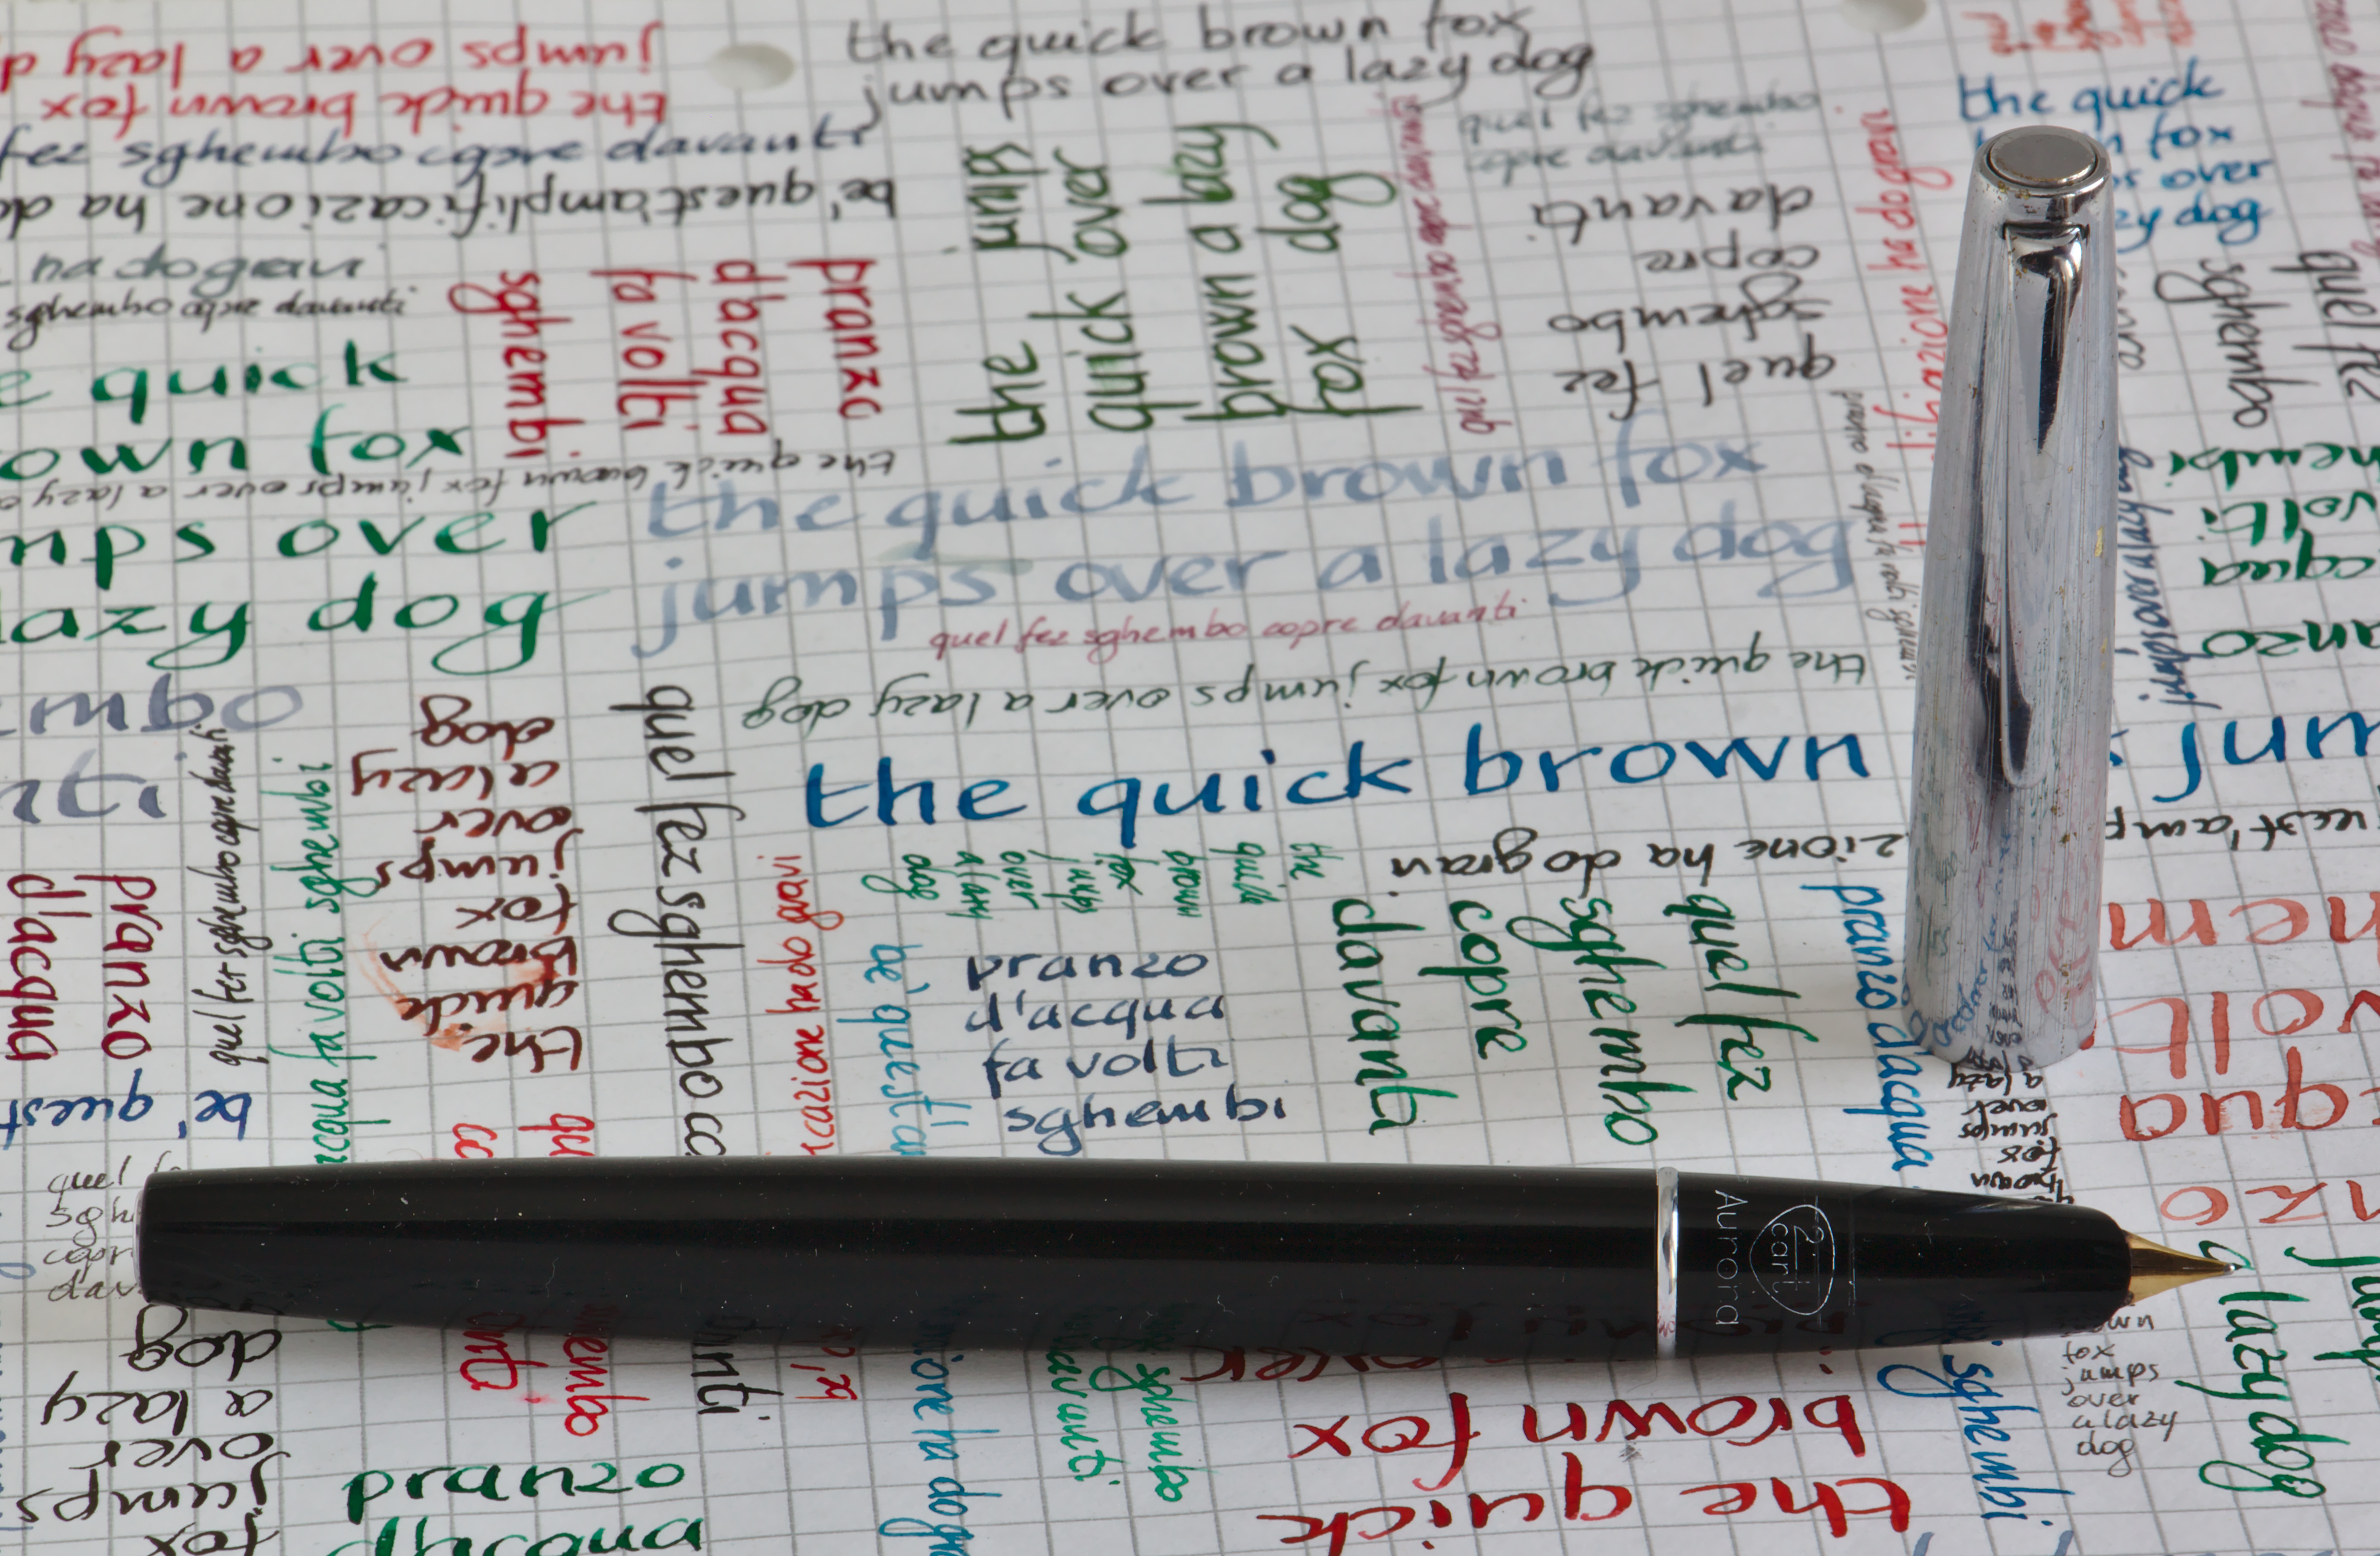 the quick brown fox
jumps over a lazy dog
jumps over a lazy d
the quick brown fox
fez sghembo copre davanti
be' quest'amplificazione ha do
ha do gravi
sghembo copre davanti
pranzo
d'acqua
fa volti
sghembi
the jumps
quick over
brown a lazy
fox dog
quel fez sghembo copre davanti
quel fez sghembo
copre davanti
quel fez
sghembo
copre
davanti
the quick
fox
over
zy dog
quel fez
sghembo
e quick
own fox
mps over
lazy dog
the quick brown fox jumps over a lazy
the quick brown fox
jumps over a lazy dog
quel fez sghembo copre davanti
the quick brown fox jumps over a lazy dog
pranzo d'acqua fa volti sghembi
jumps over a lazy dog
hembi
volti
cqua
anzo
mbo
nti
the quick brown
jum
uest'amp
zione ha do gravi
pranzo
d'acqua
quel fez sghembo copre davanti
acqua fa volti sghembi
the
quick
brown
fox
jumps
over
a lazy
dog
quel fez sghembo co
icazione ha do gravi
be' quest'a
the
quick
brown
fox
jumps
over
a lazy
dog
pranzo
d'acqua
fa volti
sghembi
quel fez
sghembo
copre
davanti
pranzo d'acqua
hem
volt
qua
nzo
be' quest
qu
co
quel fe
sghe
copr
dav
brown
fox
jumps
over
a lazy
Aurora
2
cart
the quick
brown fox
over
fox
jumps
over
a lazy
dog
hembo
anti
anti
zione ha do grav
sghembo
davanti
sghembi
own
fox
jumps
over
a lazy
dog
a lazy dog
jump
pranzo
d'acqua